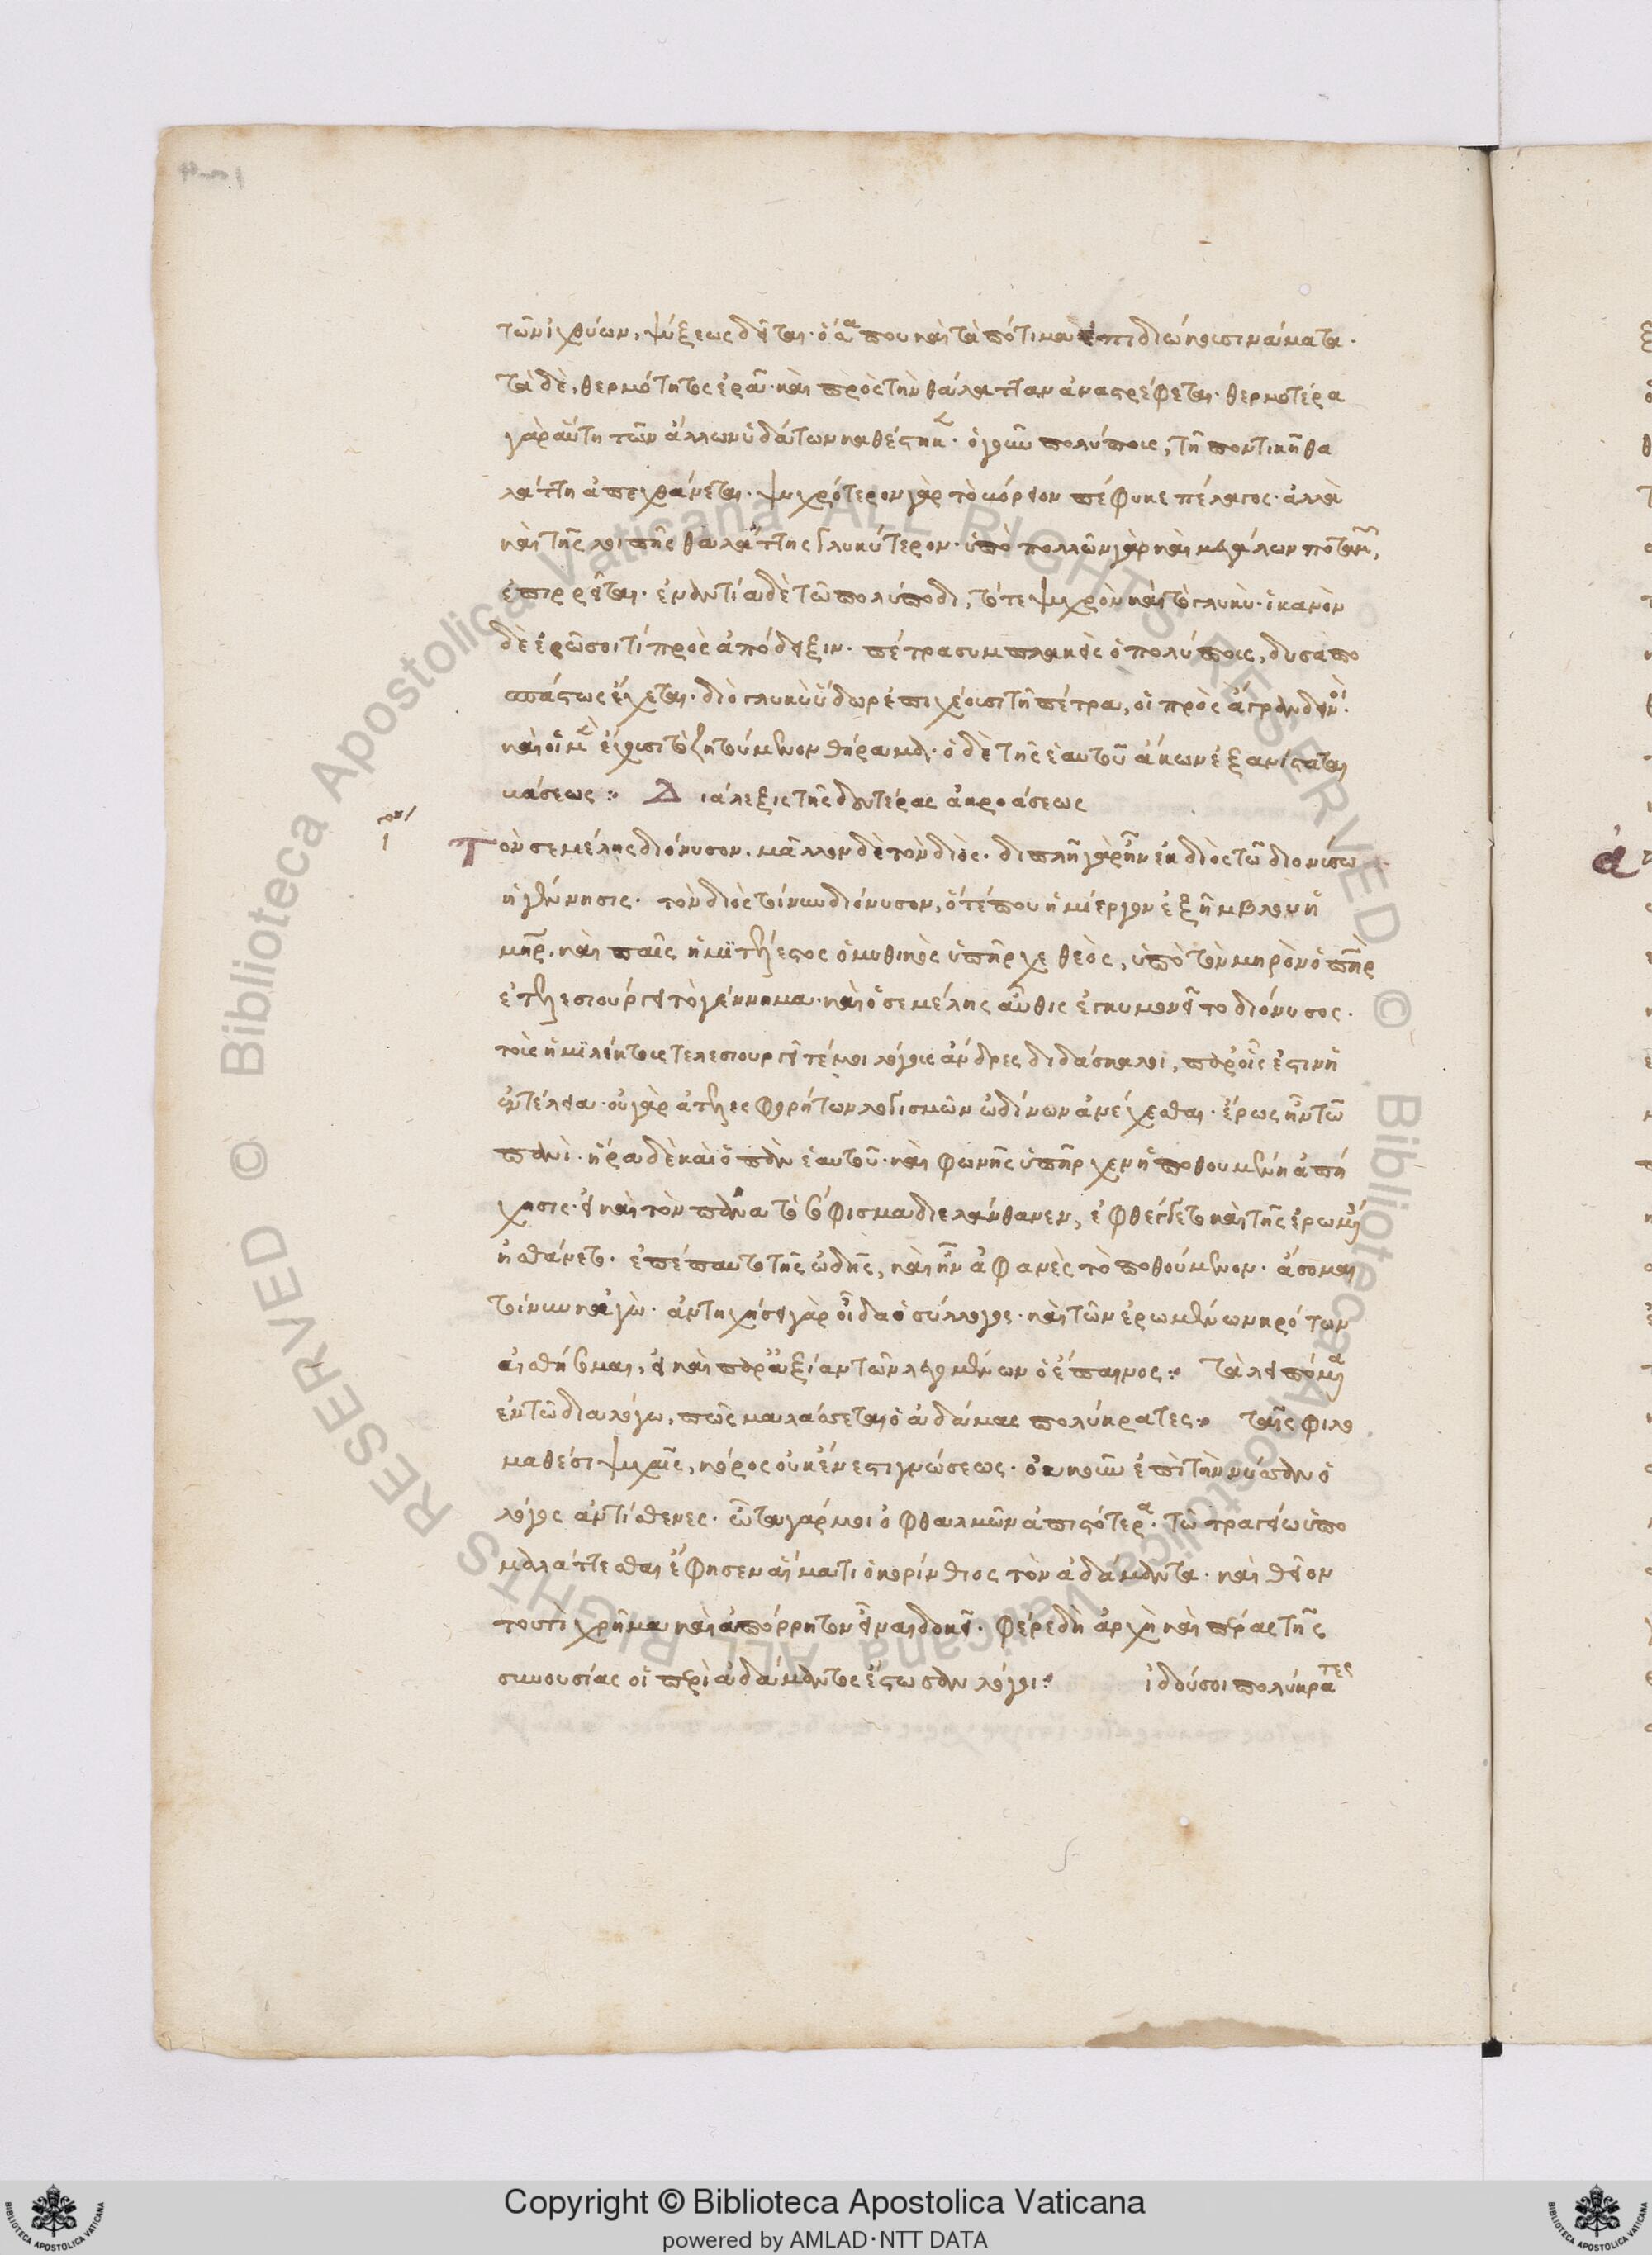 τῶν ἰχθύων, ψύξεως δεῖται· ὅθεν που καὶ τὰ πότιμα ἐπιδιώκουσι νάματα·
τὰ δὲ, θερμότητος ἐρᾶ· καὶ πρὸς τὴν θάλατταν ἀναστρέφεται· θερμοτέρα
γὰρ αὕτη τῶν ἄλλων ὑδάτων καθέστηκε· ὁ γοῦν πολύπους, τῇ ποντικῇ θα
λάττῃ ἀπεχθάνεται· ψυχρότερον γὰρ τὸ πέφυκε πέλαγος· ἀλλὰ
καὶ τῆς λοιπῆς θαλάττης γλυκύτερον· ὑπὸ πολλῶν γὰρ καὶ μεγάλων ποταμῶν,
ἐπιρρεῖται· ἐναντία δὲ τῶ πολύποδι, τό τε ψυχρὸν καὶ τὸ γλυκὺ· ἱκανὸν
δὲ ἐρῶ σοί τι πρὸς ἀπόδειξιν· πέτρα συμπλακεὶς ὁ πολύπους, δυσαπο
σπάστως ἔχεται· διὸ γλυκὺ ὕδωρ ἐπιχέουσι τῇ πέτρα, οἱ πρὸς ἄγραν δεινοί·
καὶ οἱ μὲν ἔχουσι τὸ ζητούμενον θήραμα· ὁ δὲ τῆς ἑαυτοῦ ἄκων ἐξανίσταται
κάσεως :· Διάλεξις τῆς δευτέρας ἀκροάσεως
Τὸν σεμέλης διόνυσον. μᾶλλον δὲ τὸν διὸς· διπλῆ γὰρ ἦν ἐκ διὸς τῶ διονύσω
ἡ γέννησις· τὸν διὸς τοίνυν διόνυσον, ὅτέ που ἡμίεργον ἐξήμβλου ἡ
μήτηρ. καὶ παῖς ἡμιτέλεστος ὁ μυθικὸς ὑπῆρχε θεὸς, ὑπὸ τὸν μηρὸν ὁ πατὴρ
ἐτελεσιούργει τὸ γέννημα· καὶ ὁ σεμέλης αὖθις ἐκυμονεῖτο διόνυσος·
τοῖς ἡμιλέκτοις τελεσιουργεῖτέ μοι λόγοις ἄνδρες διδάσκαλοι, παρ' οἷς ἐστιν ἡ
ἐντέλεια· οὐ γὰρ ἀτελεσφορήτων λογισμῶν ὠδίνων ἀνέχεσθαι· ἔρως ἦν τῶ
πανὶ· ἤρα δὲ καὶ ὁ πὰν ἑαυτοῦ· καὶ φωνῆς ὑπῆρχεν ἡ ποθουμένη ἀπή
χησις· εἰ καὶ τὸν πᾶνα τὸ σόφισμα διελάνθανεν, ἐφθέγγετο καὶ τῆς ἐρωμένης
ἠσθάνετο· ἐπέπαυτο τῆς ὠδῆς, καὶ ἦν ἀφανὲς τὸ ποθούμενον· ἄσομαι
τοίνυν κἀγὼ· ἀντηχήσει γὰρ οἶδα ὁ σύλλογος· καὶ τῶν ἐρωμένων κρότων
αἰσθήσομαι, εἰ καὶ παρ' ἀξίαν τῶν λεγομένων ὁ ἔπαινος :· Τὰ λειπόμενα
ἐν τῶ διαλόγω, πῶς μαλάσσεται ὁ ἀδάμας πολύκρατες :· ταῖς φιλο
μαθέσι ψυχαῖς, κόρος οὐκ ἔνεστι γνώσεως· οὐκοῦν ἐπὶ τὴν νύσσαν ὁ
λόγος ἀντίσθενες· ὦτα γάρ μοι ὀφθαλμῶν ἀπιστότερα· τῶ τραγείω ὑπο
μαλάττεσθαι ἔφησεν αἵματι ὁ κορίνθιος τὸν ἀδάμαντα· καὶ θεῖον
τουτὶ χρῆμα καὶ ἀπόρρητον εἶναι δοκεῖ· φέρε δὴ ἀρχὴ καὶ πέρας τῆς
συνουσίας οἱ περὶ ἀδάμαντος ἔστωσαν λόγοι :· ἰδού σοι πολύκρατες